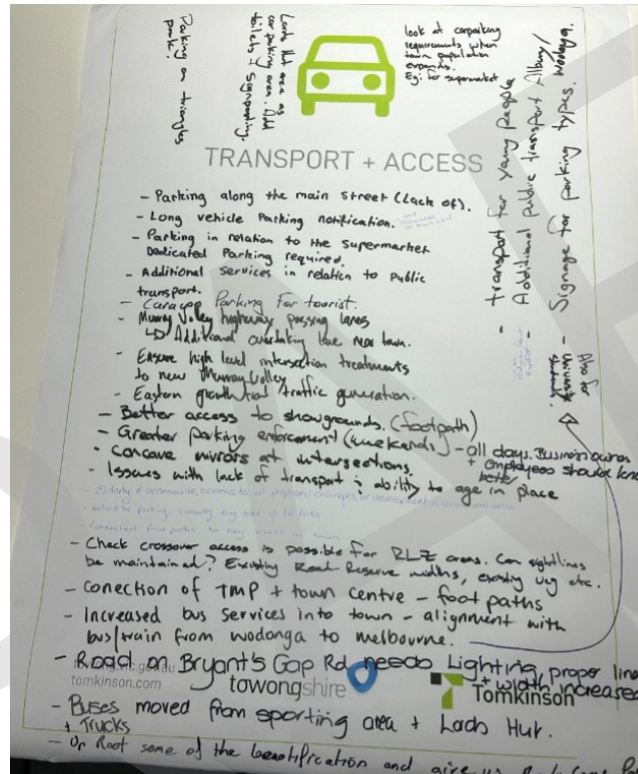 Parking on triangles
park?
Lochs Hut area as
car parking area. Add
toilets + signposting.
look at carparking
requirements when
town population
expands.
Eg: for supermarket
- transport for young people
- Additional public transport Albury/
Wodonga.
- Signage for parking types.
Also for
University
students.
TRANSPORT + ACCESS
- Parking along the main street (Lack of).
- Long vehicle Parking notification.
- Parking in relation to the supermarket
Dedicated Parking required.
- Additional services in relation to Public
transport.
- Caravan Parking For tourist.
- Murray Valley highway passing lanes
↳ Additional overtaking lane near town.
- Ensure high level intersection treatments
to new Murray Valley
- Eastern growth trial traffic generation.
- Better access to showgrounds. (footpath)
- Greater parking enforcement (weekends) - all days. Business owners
+ employees should know
better
- Concave mirrors at intersections.
- Issues with lack of transport & ability to age in place
- Check crossover access is possible for RLZ areas. Can sightlines
be maintained? Existing Road Reserve widths, existing veg etc.
- Conection of TMP + town centre - foot paths
- Increased bus services into town - alignment with
bus/train from Wodonga to Melbourne.
- Road on Bryant's Gap Rd needs Lighting, proper line
+ width increased
tomkinson.com
towongshire
Tomkinson
- Buses moved from sporting area + Lachs Hut.
+ Trucks
some of the beautification and give us